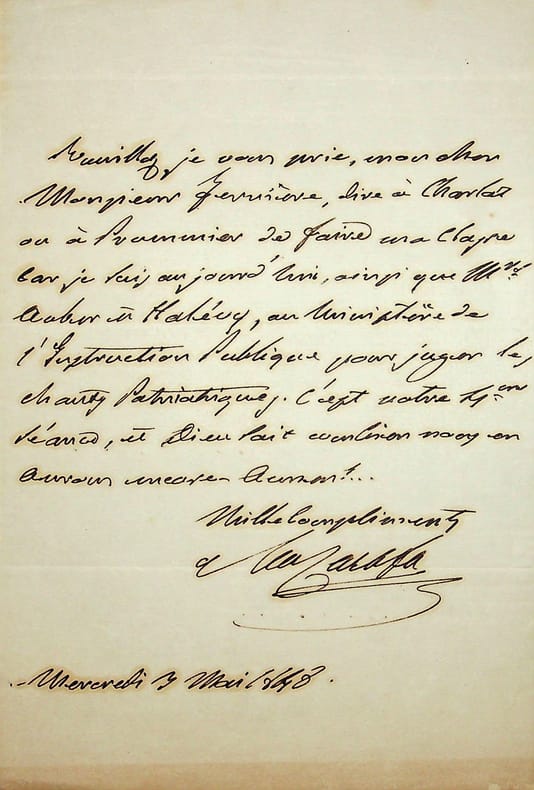 Veuillez, je vous prie, mon cher
Monsieur Ferrière, dire à Charlot
ou à Prommier de faire ma Classe
car je suis aujourd'hui, ainsi que Mrs
Auber et Halévy, au Ministère de
l'Instruction Publique pour juger les
chants Patriotiques. C'est notre
séance, et Dieu sait combien nous en
aurons encore
Mille Compliments
Carafa
Mercredi 3 Mai 1848.